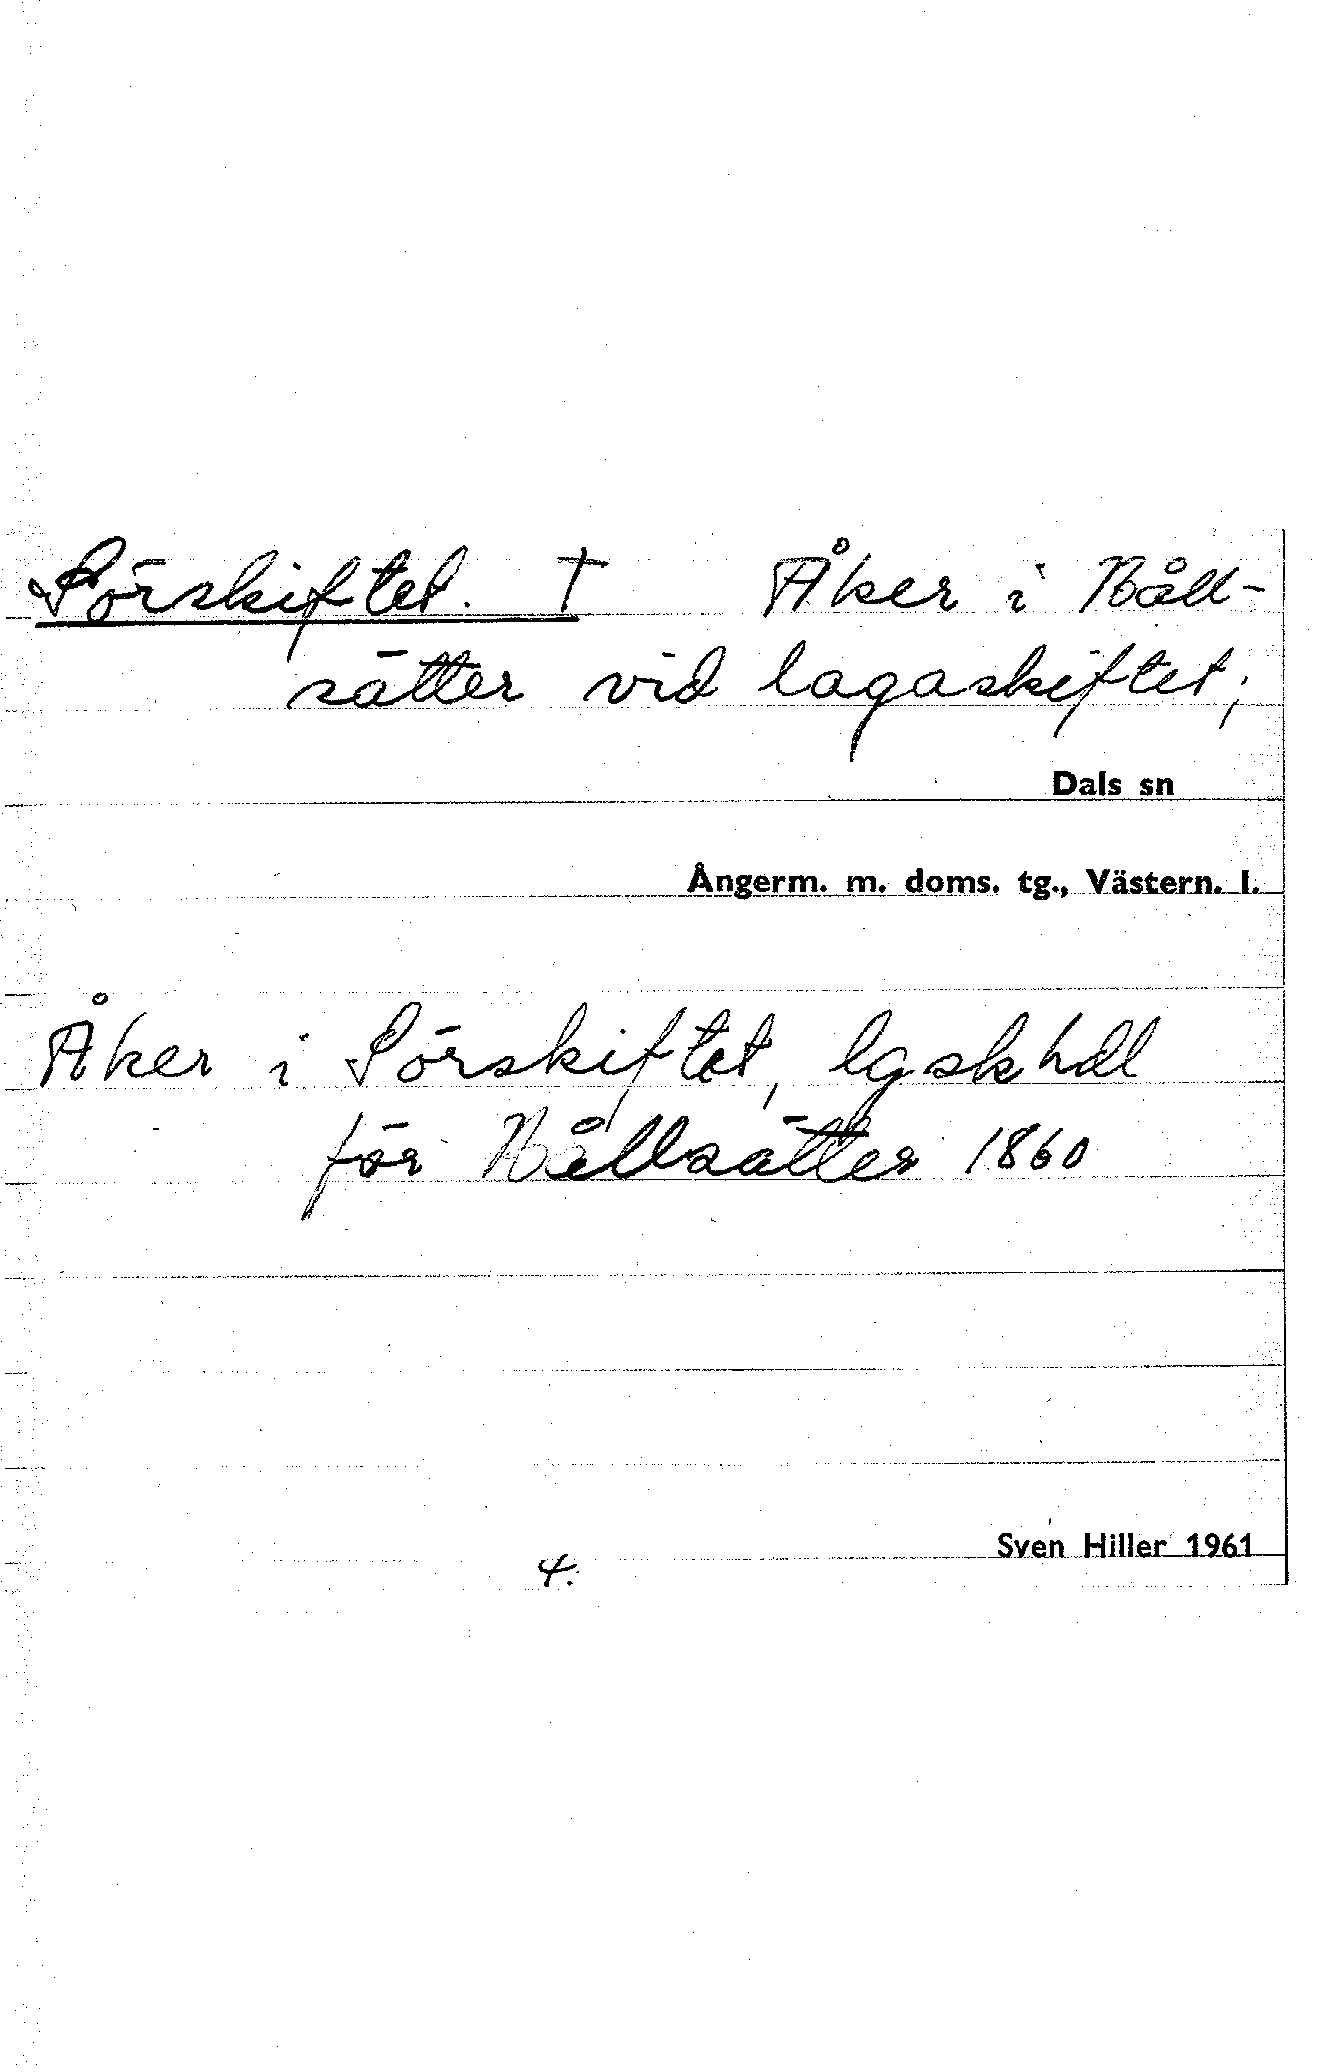 Sörskiftet. † Åker i Båll-
sätter vid lagaskiftet;
Dals sn
Ångerm. m. doms. tg., Västern. l.
Åker i Sörskiftet, lgskhdl
för Bållsätter 1860
Sven Hiller 1961
4.